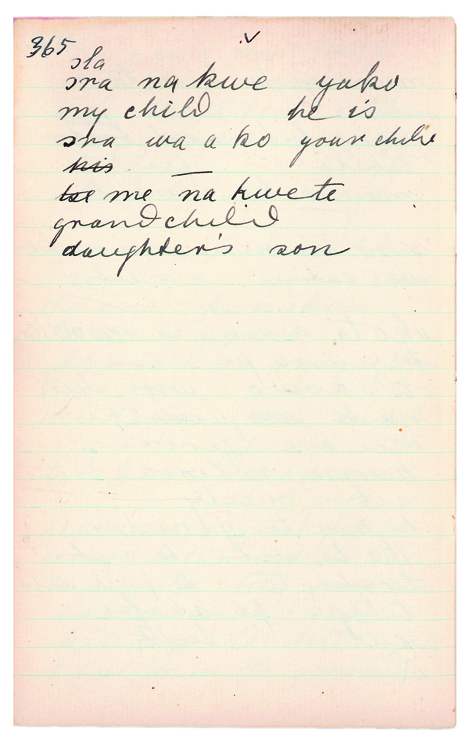 365
sla
sra na kwe yako
my child he is
sra wa a ko your child
his
tse me na kwete
grandchild
daughter's son